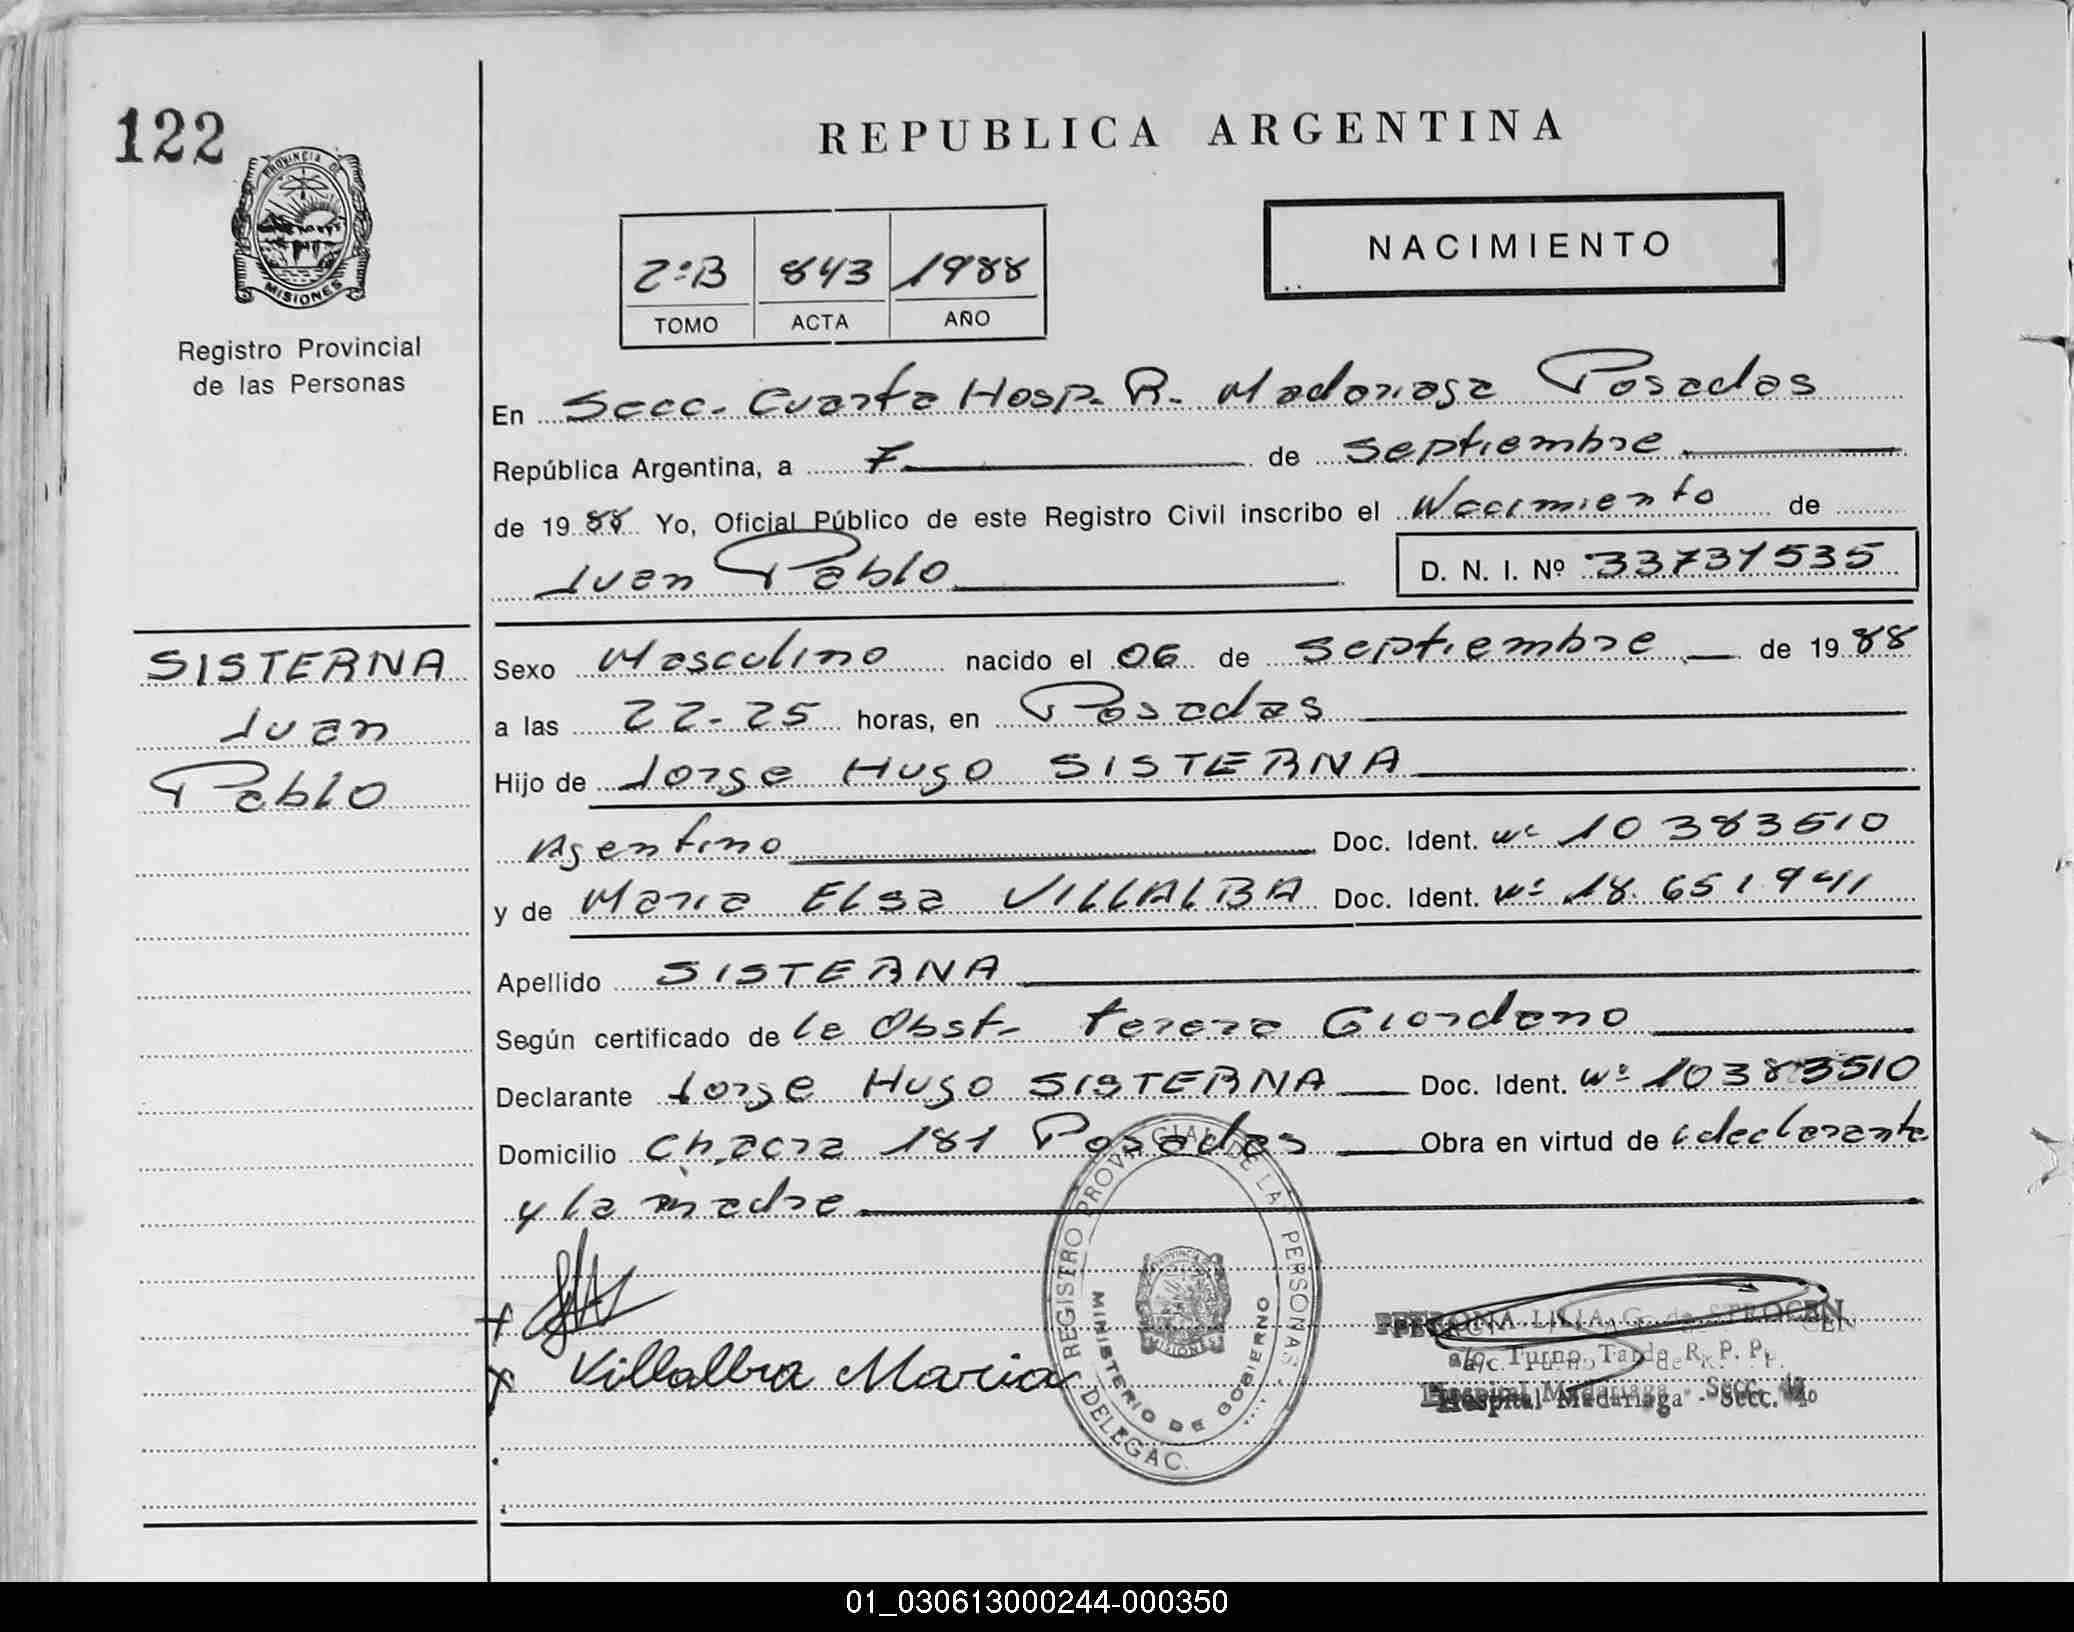 122
PROVINCIA DE
MISIONES
Registro Provincial
de las Personas
REPUBLICA ARGENTINA
2ºB 843 1988
TOMO ACTA AÑO
NACIMIENTO
En Secc. Cuarta Hosp. R. Madariaga Posadas
República Argentina, a 7 de septiembre
de 1988 Yo, Oficial Público de este Registro Civil inscribo el Nacimiento de
Juan Pablo
D. N. I. Nº 33731535
SISTERNA
Juan
Pablo
Sexo Masculino nacido el 06 de Septiembre de 1988
a las 22-25 horas, en Posadas
Hijo de Jorge Hugo SISTERNA
Agentino Doc. Ident. Nº 10383510
y de Maria Elsa VILLALBA Doc. Ident. Nº 18.651.941
Apellido SISTERNA
Según certificado de la Obst. Giordano
Declarante Jorge Hugo SISTERNA Doc. Ident. Nº 10383510
Domicilio Chacra 181 Posadas Obra en virtud de declarante
y la madre
x
x Villalba Maria
REGISTRO PROVINCIAL DE LAS PERSONAS
MINISTERIO DE GOBIERNO
DELEGAC.
PETRONA LILIA G. de
a/c. Turno Tarde R. P. P.
Hospital Madariaga - Secc. 4º
01_030613000244-000350